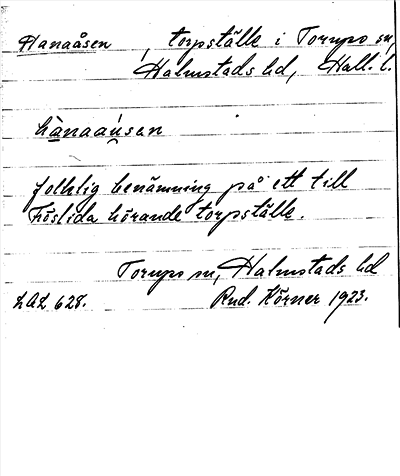 Hanaåsen, torpställe i Torups sn,
Halmstads hd, Hall. l.
hànaáusen
folklig benämning på ett till
Fröslida hörande torpställe.
Torups sn, Halmstads hd
LAL 628. Rud. Körner 1923.